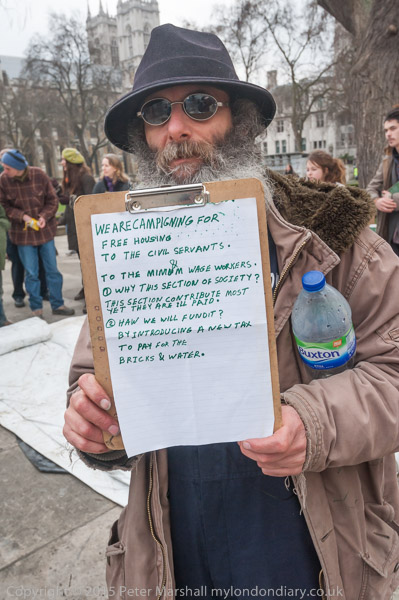 WE ARE CAMPIGNING FOR
FREE HOUSING
TO THE CIVIL SERVANTS.
&
TO THE MINIMUM WAGE WORKERS.
① WHY THIS SECTION OF SOCIETY?
THIS SECTION CONTRIBUTE MOST
YET THEY ARE ILL PAID.
② HAW WE WILL FUND IT?
BY INTRODUCING A NEW TAX
TO PAY FOR THE
BRICKS & WATER.
Buxton
Copyright 2015 Peter Marshall mylondondiary.co.uk